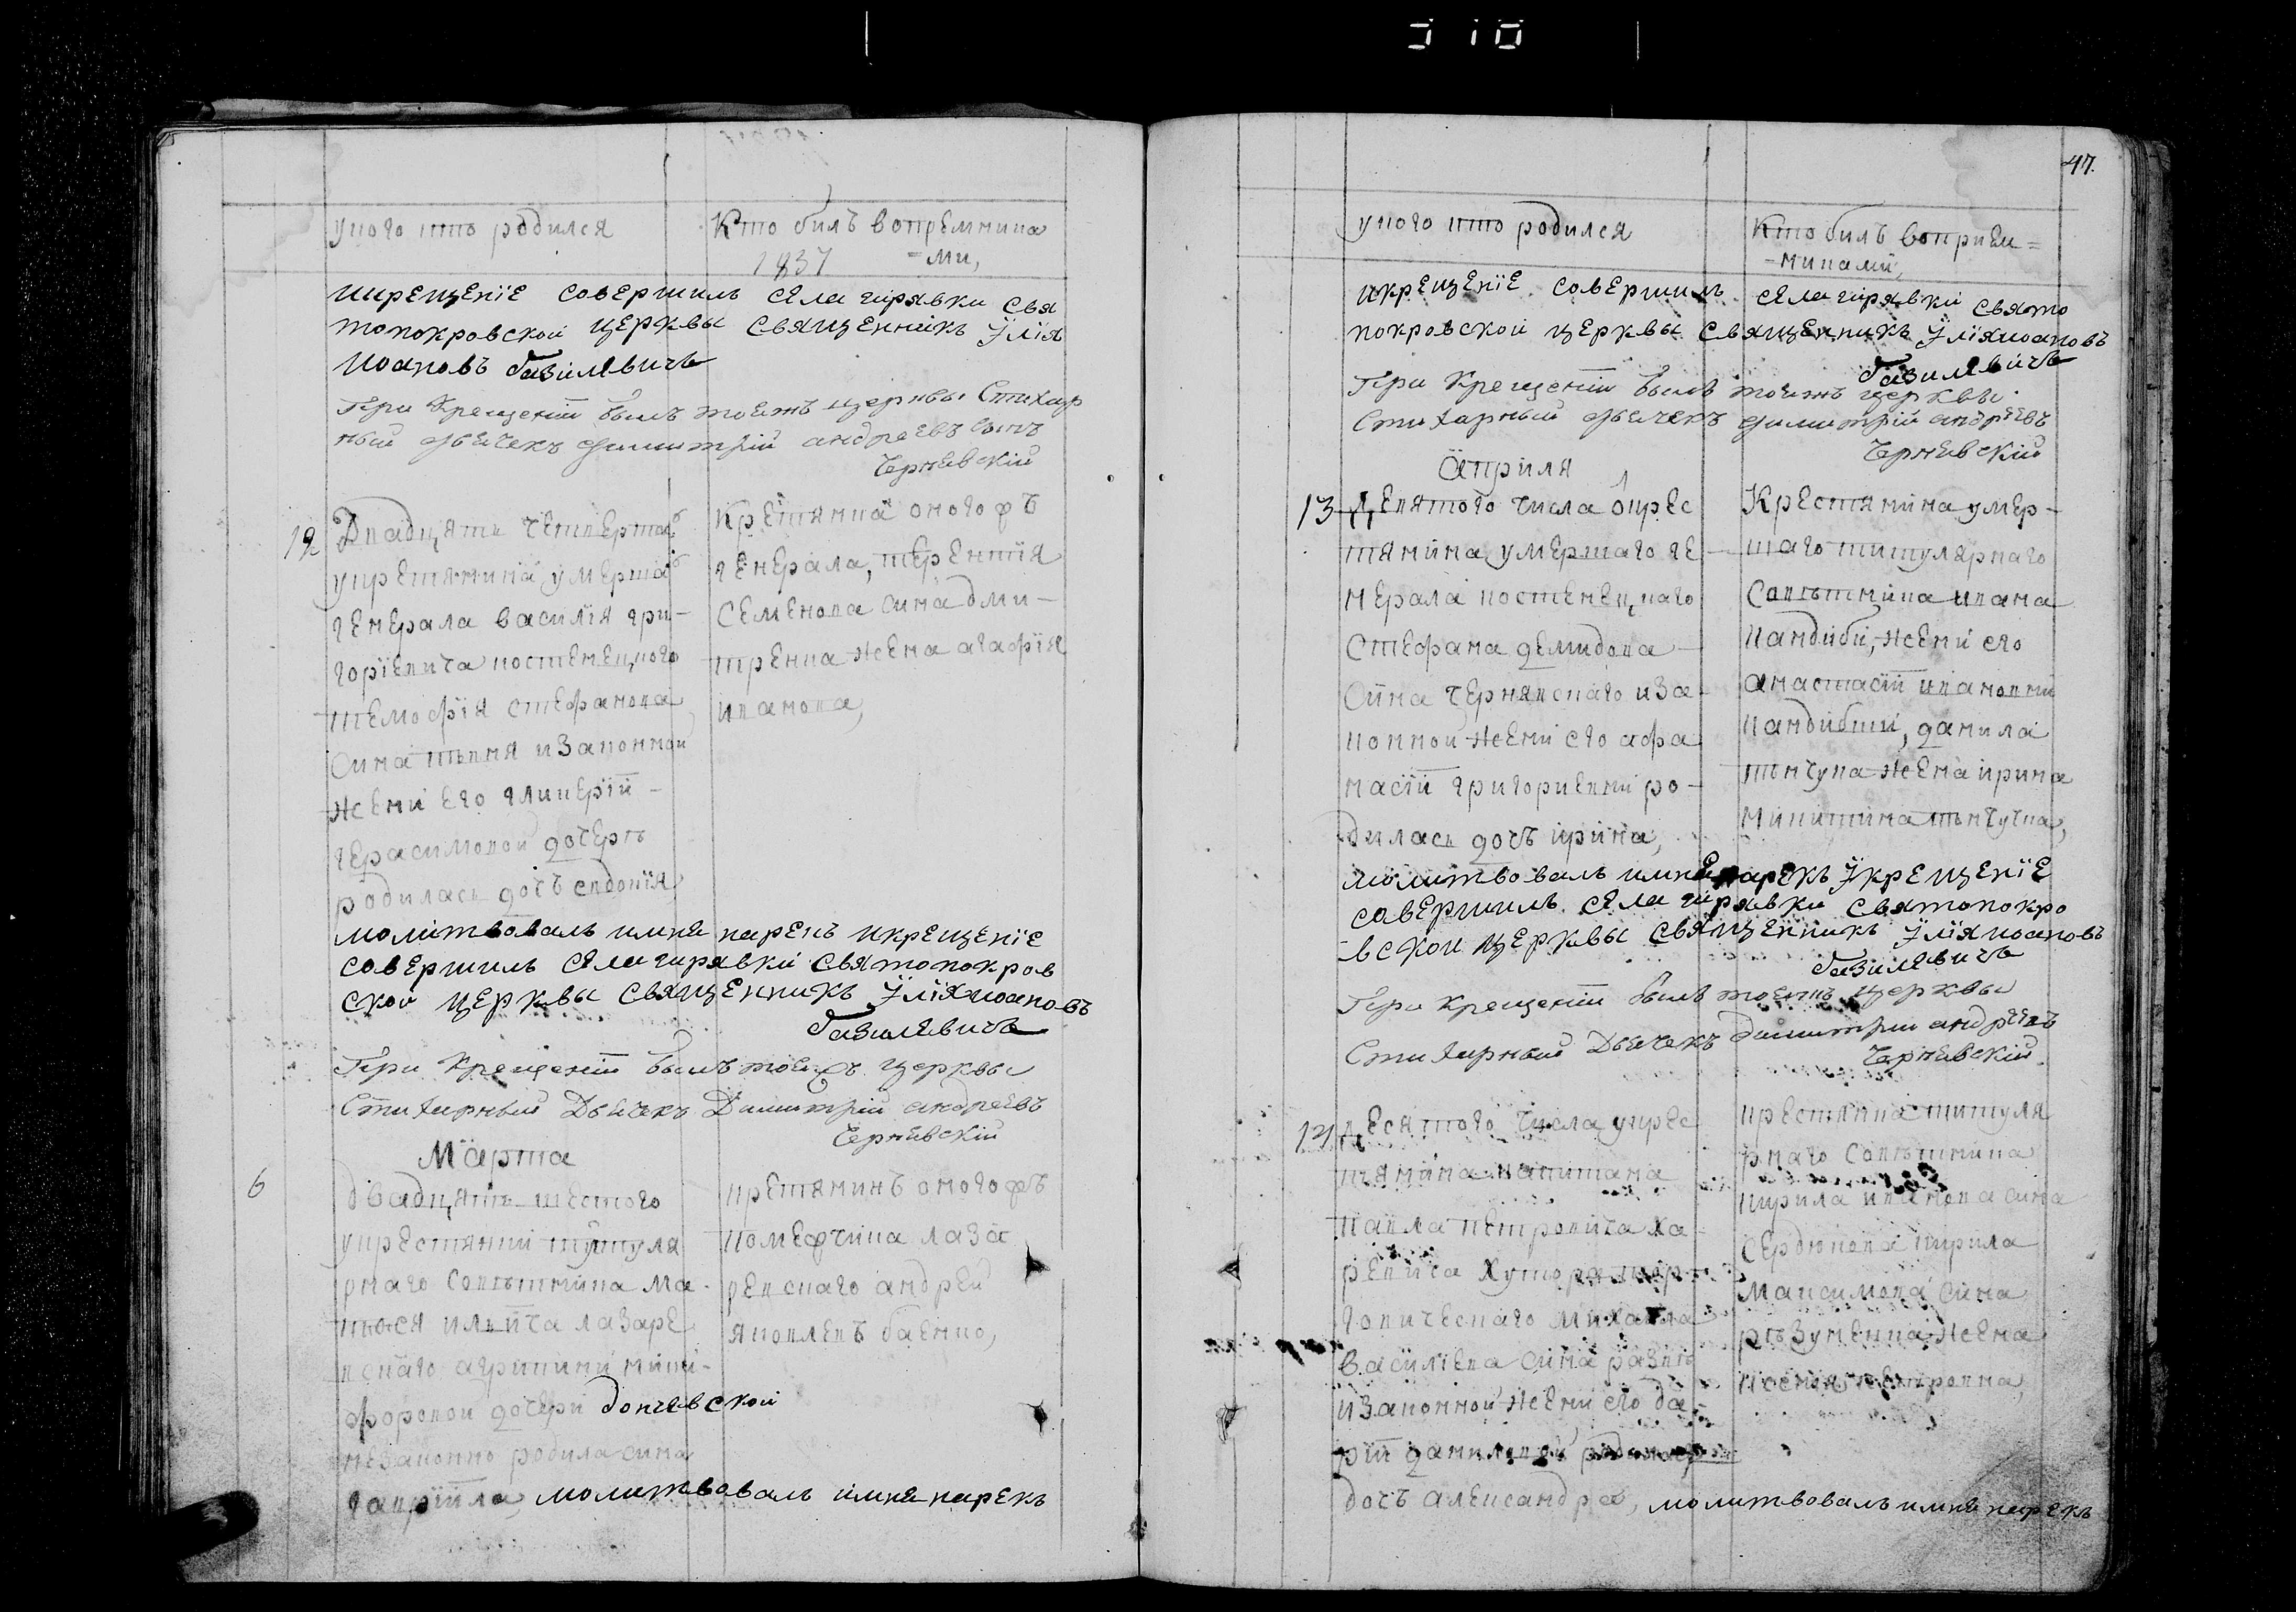 47.
уного кто родился
Кто билъ вопремника
1837 =ми,
икрещенїе совершилъ села гирявки свя
топокровской церквы священникъ Їлїя
Иоановъ базилевичъ
При Крещенїи былъ тоежъ церквы Стихар
ный дьячекъ димитрїй андреевъ сынъ
Чернявскїй
12
Двадцять четверта
укретянина, умерша
генерала василїя гри-
горїевича костенецкого
темофїя стефанова
Сина тъпня изаконной
жени его гликерїй -
герасимовой дочерѣ
родилась дочъ евдокїя,
Кретянна оного ѳъ
генерала, терентїя
Семенова сина дми-
тренка жена агафїя
иванова,
молитвовалъ имня нарекъ икрещенїе
совершилъ села гирявки святопокров
ской церквы священникъ Їлїя иоановъ
базилевичъ
При Крещенїи былъ тоежъ церквы
Стихарный Дьячекъ Димитрїй андреевъ
Чернявскїй
Марта
6
двадцять шестого
укрестянки титуля
рнаго Совѣтника Ма-
ѳея ильича лазаре
вскаго агрипини ники-
форовой дочери дончевской
незаконно родила сина
гаврїила, молитвовалъ имня нарекъ
кретянинъ оного ѳъ
помещика лаза
ревскаго андрей
яковлевъ баенко,
уного кто родился
Кто билъ воприем=
-никами,
икрещенїе совершилъ села гирявки свято
покровской церквы священникъ Їлїя иоановъ
базилевичъ
При Крещенїи былъ тоежъ церквы
Стихарный дьячекъ димитрїй андреевъ
Чернявскїй
Априля
13
Девятого числа окрес
тянина, умершаго ге-
нерала костенецкаго
Стефана демидова -
Сина чернявскаго иза-
конной жени его афа
насїи григориевни ро-
дилась дочъ ирина,
Крестянина умер-
шаго титулярнаго
Совѣтника ивана
кандиби, жени его
анастасїи ивановни
кандибїи, данила
тънчука жена ирина
никитина тънчучка,
молитвовалъ имня нарекъ Їкрещенїе
совершилъ села гирявки святопокро
вской церквы священникъ Їлїя иоановъ
базилевичъ
При Крещенїи былъ тоежъ церквы
Стихарный Дьячекъ Димитрїй андреевъ
Чернявскїй
14
Десятого числа укрес
тянина капитана
павла петровича ха
ренка хутора
михаила
василїева сина
изаконной жени его да-
рїи даниловой родилась
дочъ александра, молитвовалъ имня нарекъ
крестянна титуля
рнаго Совѣтника
кирила иванова сина
Сердюкова кирила
Максимова сина
рѣзуменка жена
ксенїя петровна,